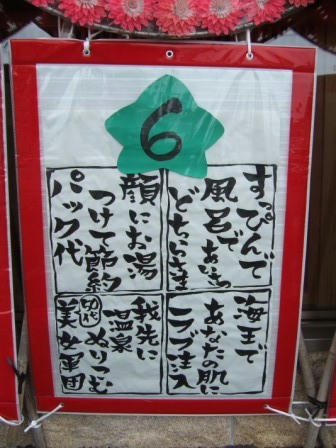 6
すっぴんで
風呂であいさつ
どちらさま
顔にお湯
つけて節約
パック代
海王で
あなたの肌に
ラブ注入
我先に
温泉ぬりつむ
美女軍団